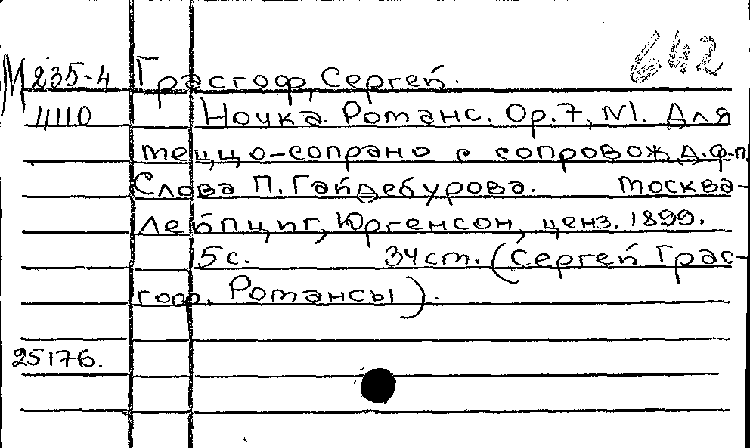 642
М 235-4 Грасгоф, Сергей.
4110 Ночка. Романс. Op.7, N1. Для
меццо-сопрано с сопровожд.ф.п.
Слова П. Гайдебурова. Москва-
Лейпциг, Юргенсон, ценз. 1899.
5с. 34см. (Сергей Грас-
гоф. Романсы).
25176.